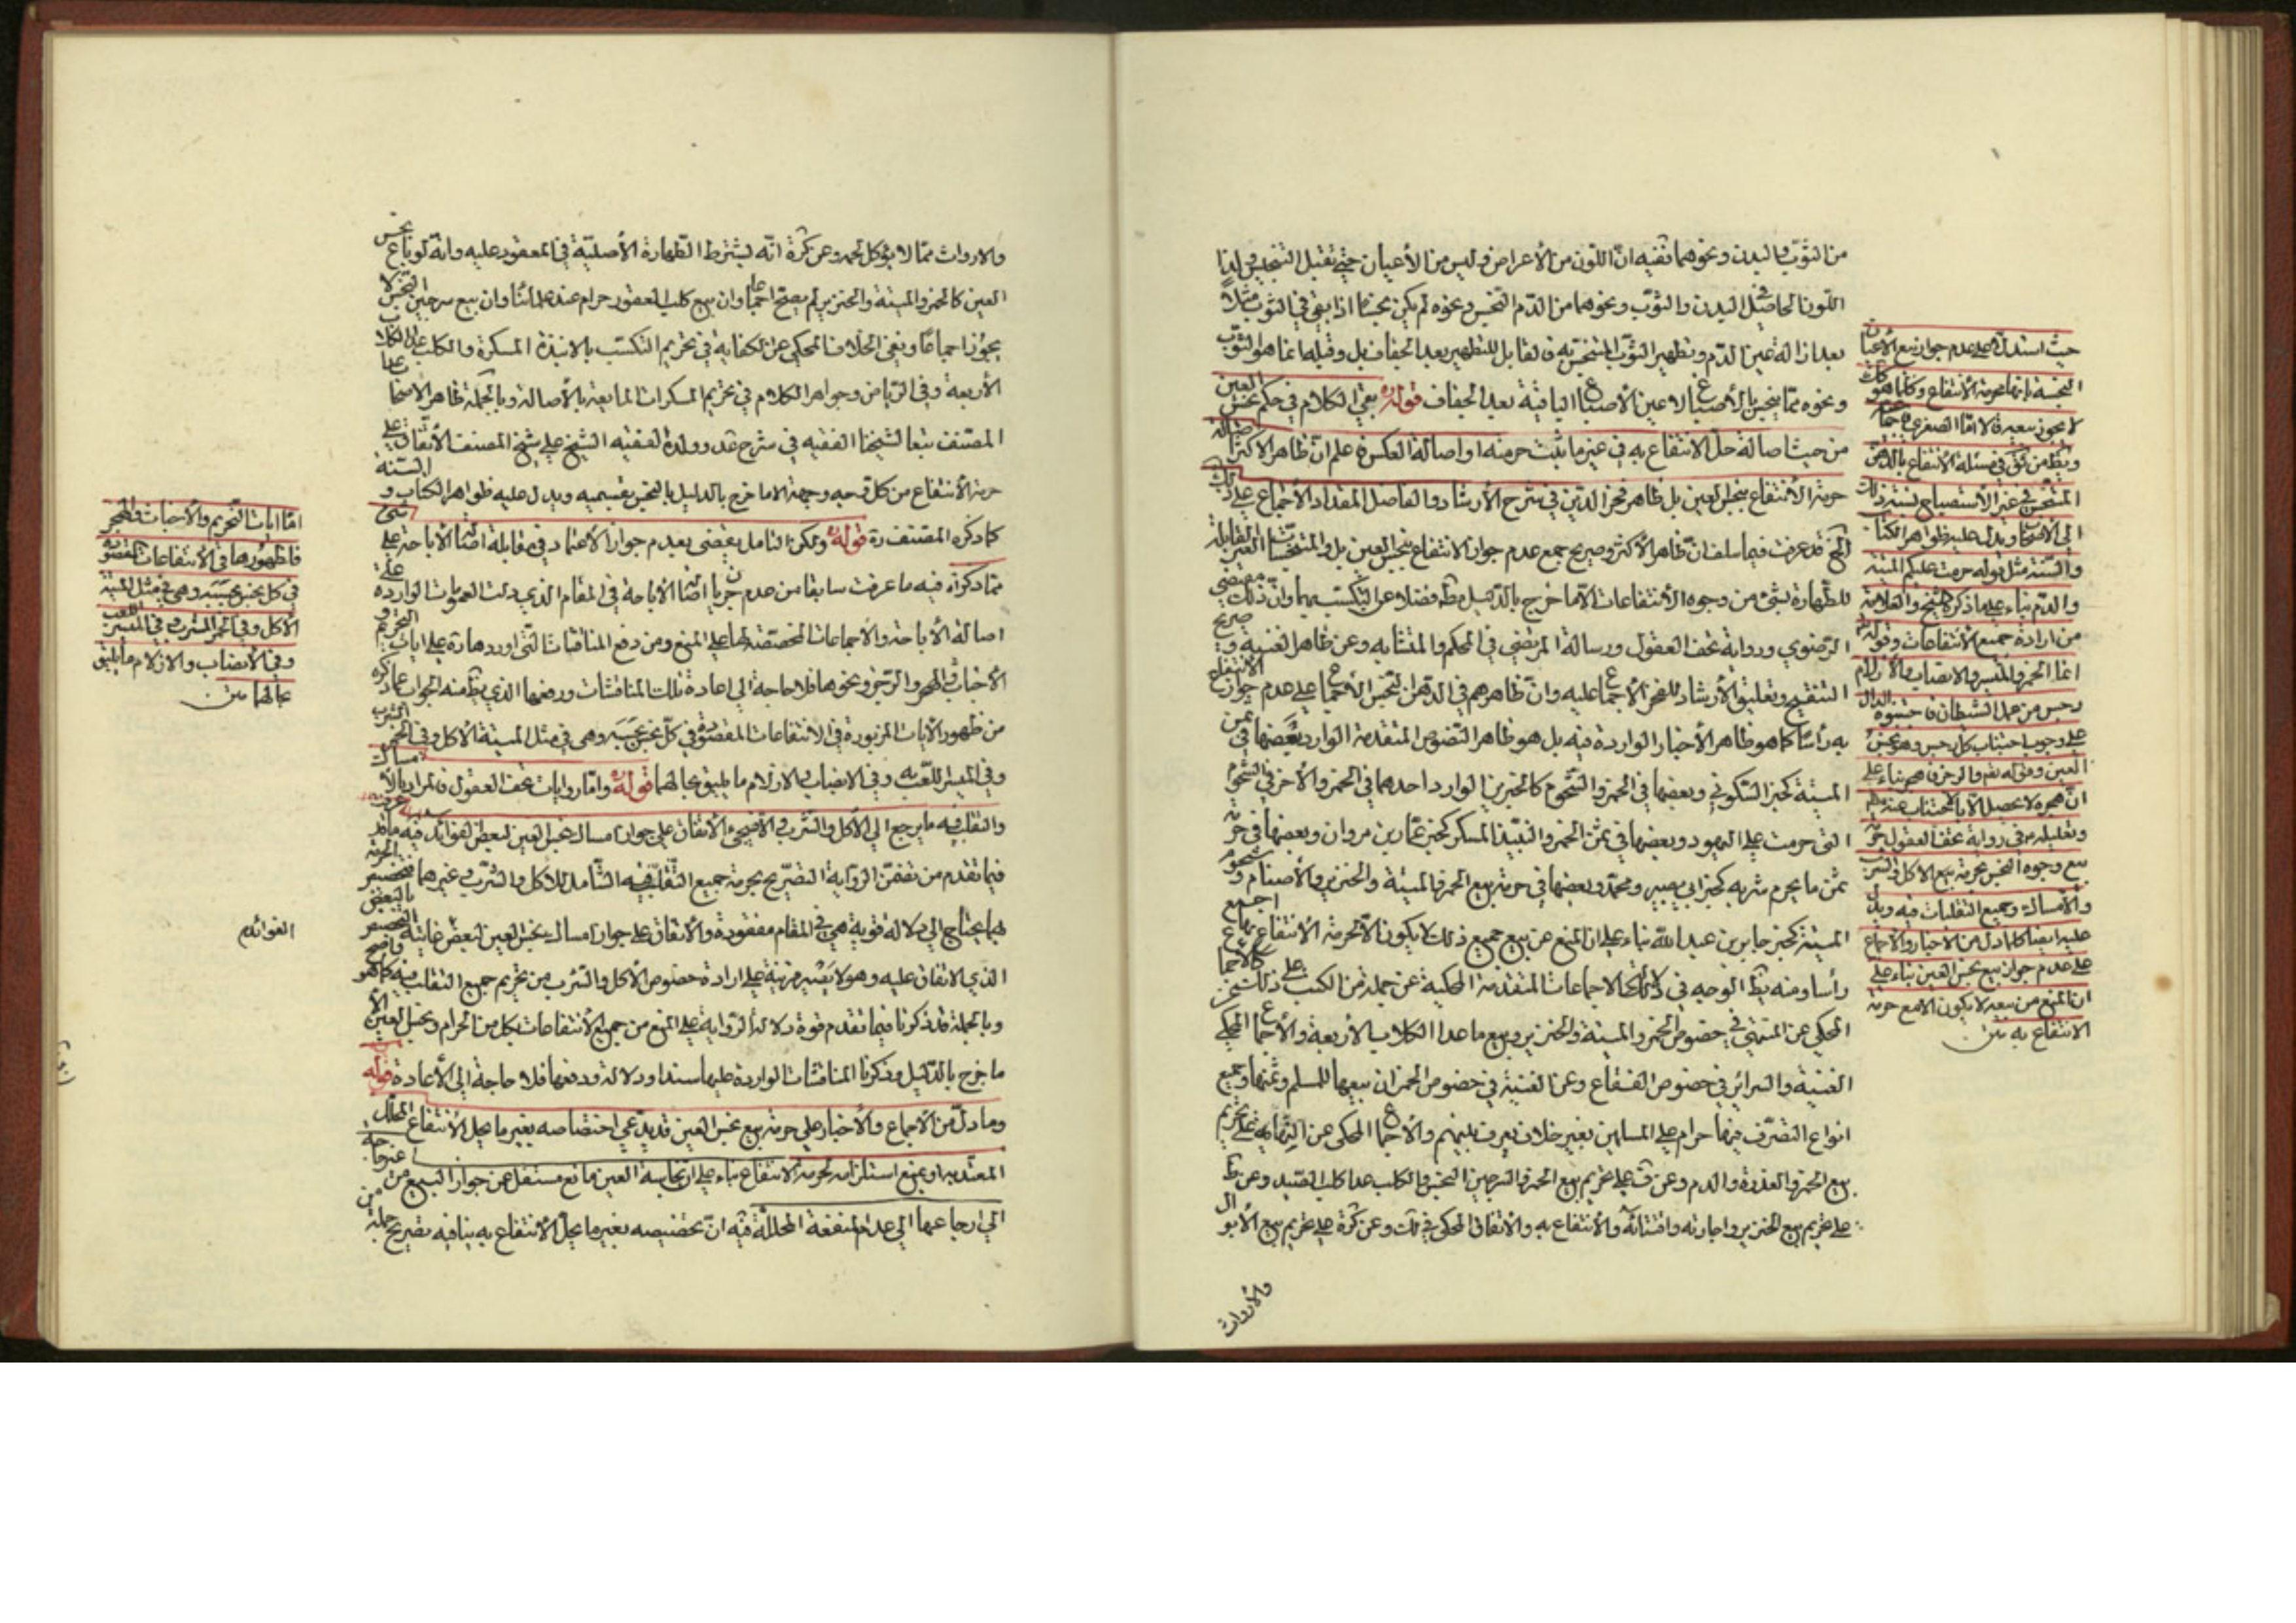 من الثوب والبدن ونحوهما ففيه ان اللون من الأعراض وليس من الأعيان حتى تقبل التنجيس ولذا
اللون الحاصل في البدن والثوب ونحوهما من الدم النجس ونحوه لم يكن نجسا اذا بقى في الثوب مثلا
بعد ازالة عين الدم وتطهير الثوب المتنجس به فالقابل للتطهير بعد الجفاف بل وقبله انما هو الثوب
ونحوه مما ينجس بالأصباغ لا عين الأصباغ الباقية بعد الجفاف قوله بقي الكلام في حكم نجس العين
من حيث اصالة حل الانتفاع به في غير ما ثبت حرمته او اصالة العكس فاعلم ان ظاهر الاكثر اصالة
حرمة الانتفاع بنجس العين بل ظاهر فخر الدين في شرح الأرشاد والفاضل المقداد الأجماع على ذلك
الخ قد عرفت فيما سلف ان ظاهر الأكثر وصريح جمع عدم جواز الانتفاع بنجس العين بل والمتنجسات الغير القابلة
للطهارة بشئ من وجوه الأنتفاعات الا ما خرج بالدليل فضلا عن التكسب بهما وان ذلك مقتضى
الرضوي ورواية تحف العقول ورسالة المرتضى في المحكم والمتشابه وعن ظاهر الغنية و صريح
التنقيح وتعليق الأرشاد للفخر الأجماع عليه وان ظاهرهم في الدهن النجس الأجماع على عدم جواز الانتفاع
به رأسا كما هو ظاهر الأخبار الواردة فيه بل هو ظاهر النصوص المتقدمة الوارد بعضها في ثمن
الميتة كخبر السكوني وبعضها في الخمر والشحوم كالخبرين الوارد احدهما في الخمر والأخر في الشحوم
التي حرمت على اليهود وبعضها في ثمن الخمر والنبيذ المسكر كخبر عمار بن مروان وبعضها في حرمة
ثمن ما يحرم شربه كخبر ابي بصير ومحمد وبعضها في حرمة بيع الخمر والميتة والخنزير والأصنام و شحوم
الميتة كخبر جابر بن عبد الله بناء على ان المنع عن بيع جميع ذلك لا يكون الا لحرمة الأنتفاع بها اجمع
رأسا ومنه يظ الوجه في دلالة الاجماعات المتقدمة المحكية عن جملة من الكتب على ذلك كالأجماع
المحكى عن المنتهى في خصوص الخمر والميتة والخنزير وبيع ما عدا الكلاب الأربعة والأجماع المحكى عن
الغنية والسرائر في خصوص الفقاع وعن الغنية في خصوص الخمر ان بيعها للمسلم وثمنها وجميع
انواع التصرف فيها حرام على المسلمين بغير خلاف يعرف بينهم والأجماع المحكى عن النهاية على تحريم
بيع الخمر والعذرة والدم وعن ف على تحريم بيع الخمر والسرجين النجس والكلب عدا كلب الصيد وعن ط
على تحريم بيع الخنزير واجارته واقتنائه والأنتفاع به والأتفاق المحكى في لف وعن كرة على تحريم بيع الأبوال
والأرواث
حيث استدل على عدم جواز بيع الأعيان
النجسة بانها محرمة الأنتفاع وكلما هو كك
لا يجوز بيعه قال اما الصغرى فاجماعية
ويظ من في مسئلة الأنتفاع بالدهن
المتنجس في غير الأستصباح نسبة ذلك
الى الأصحاب ويدل عليه ظواهر الكتاب
والسنة مثل قوله حرمت عليكم الميتة
والدم بناء على ما ذكره الشيخ والعلامة
من ارادة جميع الأنتفاعات وقوله
انما الخمر والميسر والانصاب والأزلام
رجس من عمل الشيطان فاجتنبوه الدال
على وجوب اجتناب كل رجس وهو نجس
العين وقوله تع والرجز فاهجر بناء على
ان هجره لا يحصل الا بالاجتناب عنه
وتعليله في رواية تحف العقول حرمة
بيع وجوه النجس بحرمة بيع الاكل والشرب
والأمساك وجميع التقلبات فيه ويدل
عليه ايضا كلما دل من الاخبار والأجماع
على عدم جواز بيع نجس العين بناء على
ان المنع من بيعه لا يكون الا مع حرمة
الانتفاع به متن
والارواث مما لا يؤكل لحمه وعن كرة انه يشترط الطهارة الأصلية في المعقود عليه وانه لو باع نجس
العين كالخمر والميتة والخنزير لم يصح اجماعا وان بيع كلب العقور حرام عند علمائنا وان بيع سرجين النجس لا
يجوز اجماعا ونفى الخلاف المحكى عن الكفاية في تحريم التكسب بالانبذة المسكرة والكلب عدا الكلاب
الأربعة وفي الرياض وجواهر الكلام في تحريم المسكرات المايعة بالأصالة وبالجملة ظاهر الاصحاب
المصنف تبعا لشيخنا الفقيه في شرح عد وولده الفقيه الشيخ على شيخ المصنف الأتفاق على
حرمة الأنتفاع من كل وجه وجهة الا ما خرج بالدليل بالنجس بقسميه ويدل عليه ظواهر الكتاب و السنة
كما ذكره المصنف ره قوله ولكن التامل يقضى بعدم جواز الأعتماد في مقابلة اصالة الأباحة على شئ
مما ذكر اه فيه ما عرفت سابقا من عدم جريان اصالة الأباحة في المقام الذي دلت العمومات الواردة على
اصالة الأباحة والاجماعات المخصصة لها على المنع ومن دفع المناقشات التي اوردها ره على ايات التحريم و
الأجتناب والهجر والرجز ونحوها فلا حاجة الى اعادة تلك المناقشات ودفعها الذي يظ منه الجواب عما ذكره
من ظهور الأيات المزبورة في الانتفاعات المقصودة في كل نجس بحسبه وهي في مثل الميتة الأكل وفي الخمر الشرب
وفي الميسر اللعب به وفي الانصاب والازلام ما يليق بحالهما قوله واما روايات تحف العقول فالمراد بالأمساك
والتقلب فيه ما يرجع الى الأكل والشرب والا فسيجئ الأتفاق على جواز امساك نجس العين لبعض الفوائد فيه ما مر
فيما تقدم من تضمن الرواية التصريح بحرمة جميع التقلب فيه الشامل للأكل والشرب وغيرهما فتخصيص الحرمة
بهما يحتاج الى دلالة قوية هي في المقام مفقودة والأتفاق على جواز امساك نجس العين لبعض غايته التخصيص بالبعض
الذي الاتفاق عليه وهو لا يصير قرينة على ارادة خصوص الأكل والشرب من تحريم جميع التقلب فيه كما هو واضح
وبالجملة قد ذكرنا فيما تقدم قوة دلالة الرواية على المنع من جميع الأنتفاعات بكل من الحرام ونجس العين الا
ما خرج بالدليل وذكرنا المناقشات الواردة عليها سندا ودلالة ودفعها فلا حاجة الى الأعادة قوله
وما دل من الأجماع والأخبار على حرمة بيع نجس العين قد يدعى اختصاصه بغير ما يحل الأنتفاع المحلل
المعتد به او يمنع استلزامه لحرمة الانتفاع بناء على ان نجاسة العين مانع مستقل عن جواز البيع من غير حاجة
الى ارجاعها الى عدم المنفعة المحللة فيه ان تخصيصه بغير ما يحل الأنتفاع به ينافيه تصريح جملة من
اما ايات التحريم والأجتناب والهجر
فلظهورها في الأنتفاعات المقصودة
في كل نجس بحسبه وهي في مثل الميتة
الأكل وفي الخمر الشرب وفي الميسر اللعب
وفي الأنصاب والازلام ما يليق
بحالهما متن
الفوائد م